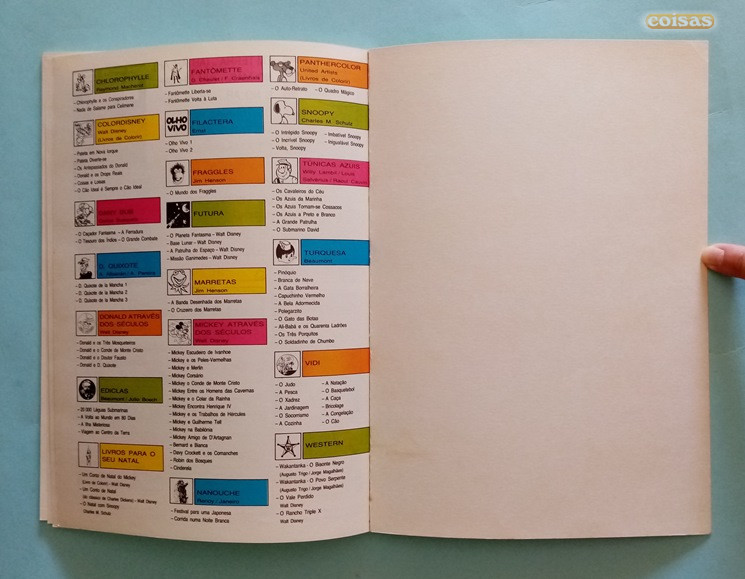 coisas
CHLOROPHYLLE
Raymond Macherot
- Chlorophylle e os Conspiradores
- Nada de Salame para Celimene
COLORDISNEY
Walt Disney
(Livros de Colorir)
- Pateta em Nova Iorque
- Pateta Diverte-se
- Os Antepassados do Donald
- Donald e os Drops Reais
- Coisas e Loisas
- O Cão Ideal é Sempre o Cão Ideal
- O Caçador Fantasma - A Ferradura
- O Tesouro dos Índios - O Grande Combate
D. QUIXOTE
- D. Quixote de la Mancha 1
- D. Quixote de la Mancha 2
D. Quixote de la Mancha 3
DONALD ATRAVÉS
DOS SÉCULOS
Walt Disney
- Donald e os Três Mosqueteiros
- Donald e o Conde de Monte Cristo
- Donald e o Doutor Fausto
- Donald e D. Quixote
EDICLAS
- 20.000 Léguas Submarinas
- A Volta ao Mundo em 80 Dias
- A Ilha Misteriosa
- Viagem ao Centro da Terra
LIVROS PARA O
SEU NATAL
- Um Conto de Natal do Mickey
(Livro de Colorir) - Walt Disney
- Um Conto de Natal
(do clássico de Charles Dickens) - Walt Disney
- O Natal com Snoopy
Charles M. Schulz
FANTÔMETTE
- Fantômette Liberta-se
- Fantômette Volta à Luta
OLHO
VIVO
FILACTERA
- Olho Vivo 1
- Olho Vivo 2
FRAGGLES
Jim Henson
- O Mundo dos Fraggles
FUTURA
- O Planeta Fantasma - Walt Disney
- Base Lunar - Walt Disney
- A Patrulha do Espaço - Walt Disney
- Missão Ganimedes - Walt Disney
MARRETAS
Jim Henson
- A Banda Desenhada dos Marretas
- O Cruzeiro dos Marretas
MICKEY ATRAVÉS
DOS SÉCULOS
Walt Disney
- Mickey Escudeiro de Ivanhoe
- Mickey e os Peles-Vermelhas
- Mickey e Merlin
- Mickey Corsário
- Mickey e Conde de Monte Cristo
- Mickey Entre os Homens das Cavernas
- Mickey e o Colar da Rainha
- Mickey Encontra Henrique IV
- Mickey e os Trabalhos de Hércules
- Mickey e Guilherme Tell
- Mickey na Babilónia
- Mickey Amigo de D'Artagnan
- Bernard e Bianca
- Davy Crockett e os Comanches
- Robin dos Bosques
- Cinderela
NANOUCHE
- Festival para uma Japonesa
- Corrida numa Noite Branca
PANTHERCOLOR
United Artists
(Livros de Colorir)
- O Auto-Retrato - O Quadro Mágico
SNOOPY
Charles M. Schulz
- O Intrépido Snoopy - Imbatível Snoopy
- O Incrível Snoopy - Inigualável Snoopy
- Volta, Snoopy
TÚNICAS AZUIS
- Os Cavaleiros do Céu
- Os Azuis da Marinha
- Os Azuis Tornam-se Cossacos
- Os Azuis a Preto e Branco
- A Grande Patrulha
- O Submarino David
TURQUESA
- Pinóquio
- Branca de Neve
- A Gata Borralheira
- Capuchinho Vermelho
- A Bela Adormecida
- Polegarzito
- O Gato das Botas
- Ali-Babá e os Quarenta Ladrões
- Os Três Porquitos
- O Soldadinho de Chumbo
VIDI
- O Judo - A Natação
- A Pesca - O Basquetebol
- O Xadrez - A Caça
- A Jardinagem - Bricolage
- O Socorrismo - A Congelação
- A Cozinha - O Cão
WESTERN
- Wakantanka - O Bisonte Negro
(Augusto Trigo / Jorge Magalhães)
- Wakantanka - O Povo Serpente
(Augusto Trigo / Jorge Magalhães)
- O Vale Perdido
Walt Disney
- O Rancho Triple X
Walt Disney